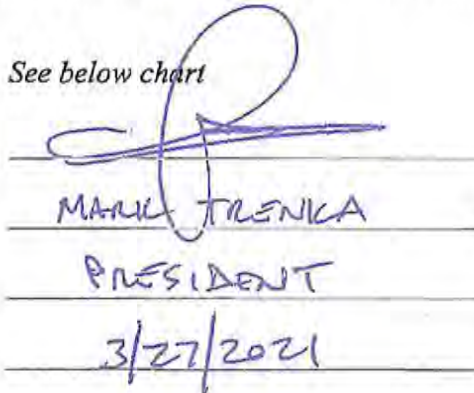 See below chart
MARK TRENKA
PRESIDENT
3/27/2021